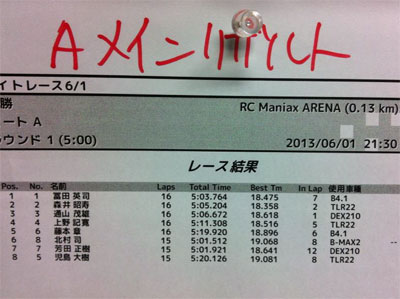 Aメイン
イトレース6/1
勝 RC Maniax ARENA (0.13 km)
ート A
ラウンド 1 (5:00) 2013/06/01 21:30
レース結果
Pos. No. 名前 Laps Total Time Best Tm In Lap 使用車種
1 1 冨田 英司 16 5:03.764 18.475 7 B4.1
2 2 森井 昭寿 16 5:05.204 18.358 2 TLR22
3 3 通山 茂雄 16 5:06.672 18.618 1 DEX210
4 4 上野 記寛 16 5:11.308 18.516 5 TLR22
5 6 藤本 章 16 5:19.920 18.896 6 B4.1
6 8 北村 司 15 5:01.512 19.068 8 B-MAX2 --
7 7 芳田 正樹 15 5:01.941 18.641 12 DEX210
8 5 児島 大樹 15 5:20.126 19.081 8 TLR22